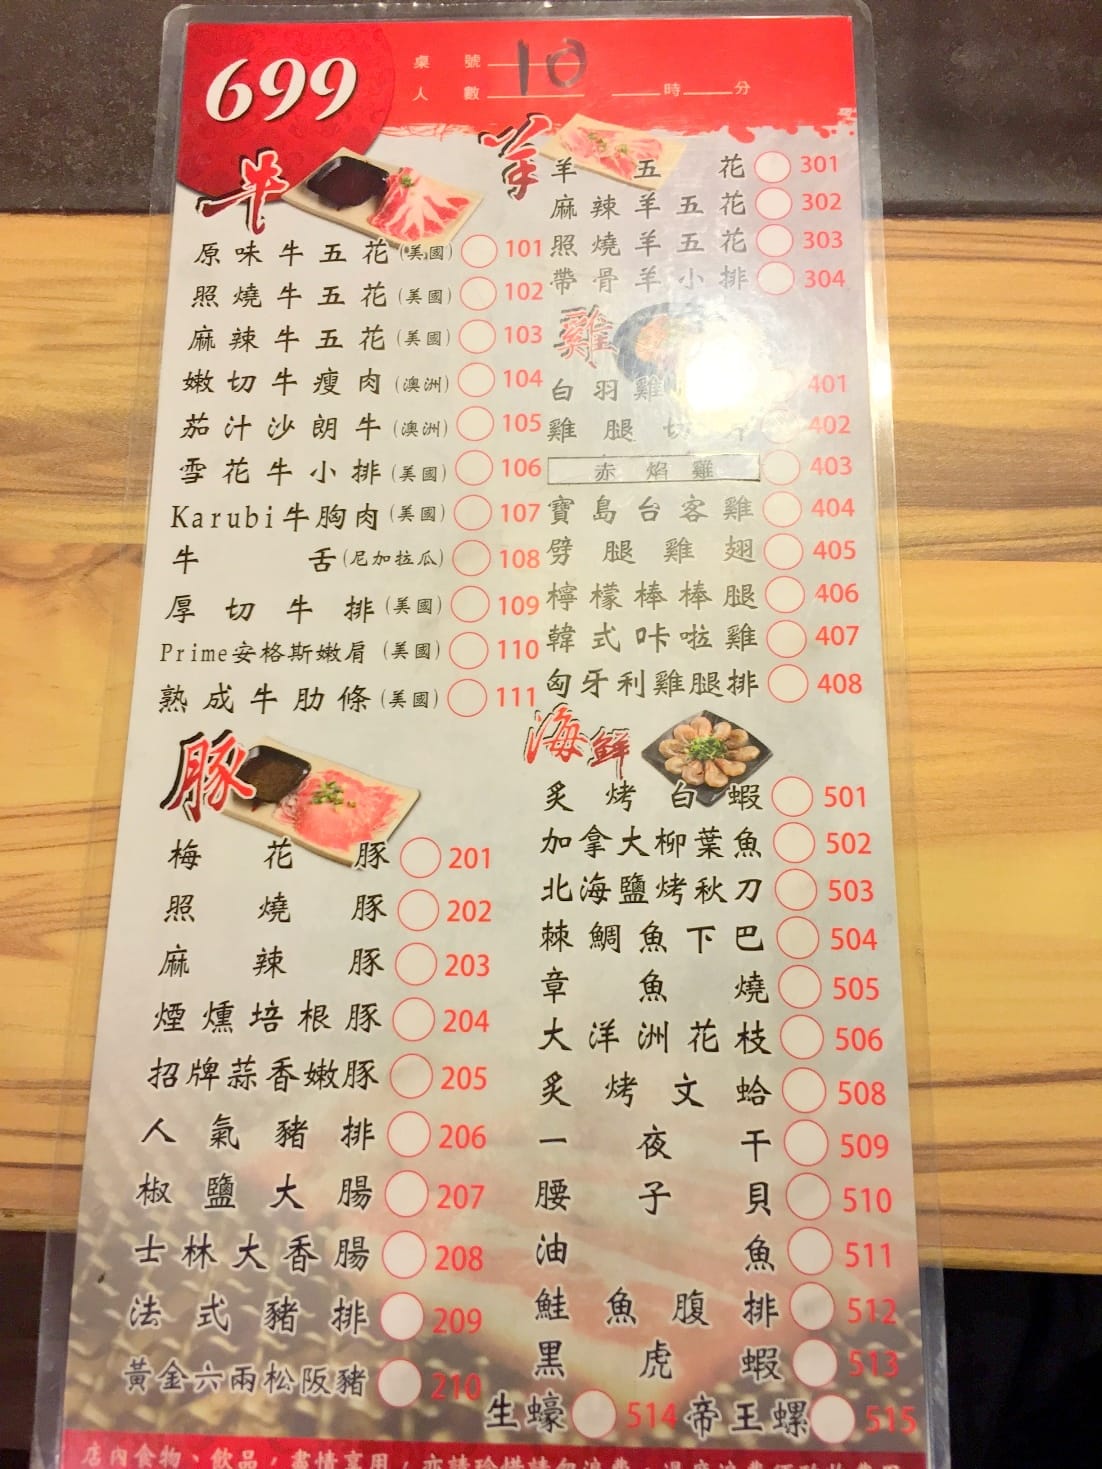 699
桌號 10
人數 時 分
牛
原味牛五花(美國) 101
照燒牛五花(美國) 102
麻辣牛五花(美國) 103
嫩切牛瘦肉(澳洲) 104
茄汁沙朗牛(澳洲) 105
雪花牛小排(美國) 106
Karubi牛胸肉(美國) 107
牛舌(尼加拉瓜) 108
厚切牛排(美國) 109
Prime安格斯嫩肩(美國) 110
熟成牛肋條(美國) 111
豚
梅花豚 201
照燒豚 202
麻辣豚 203
煙燻培根豚 204
招牌蒜香嫩豚 205
人氣豬排 206
椒鹽大腸 207
士林大香腸 208
法式豬排 209
黃金六兩松阪豬 210
羊
羊五花 301
麻辣羊五花 302
照燒羊五花 303
帶骨羊小排 304
雞
白羽雞 401
雞腿切 402
赤焰雞 403
寶島台客雞 404
劈腿雞翅 405
檸檬棒棒腿 406
韓式咔啦雞 407
匈牙利雞腿排 408
海鮮
炙烤白蝦 501
加拿大柳葉魚 502
北海鹽烤秋刀 503
棘鯛魚下巴 504
章魚燒 505
大洋洲花枝 506
炙烤文蛤 508
一夜干 509
腰子貝 510
油魚 511
鮭魚腹排 512
黑虎蝦 513
生蠔 514 帝王螺 515
店內食物、飲品,盡情享用,亦請珍惜請勿浪費